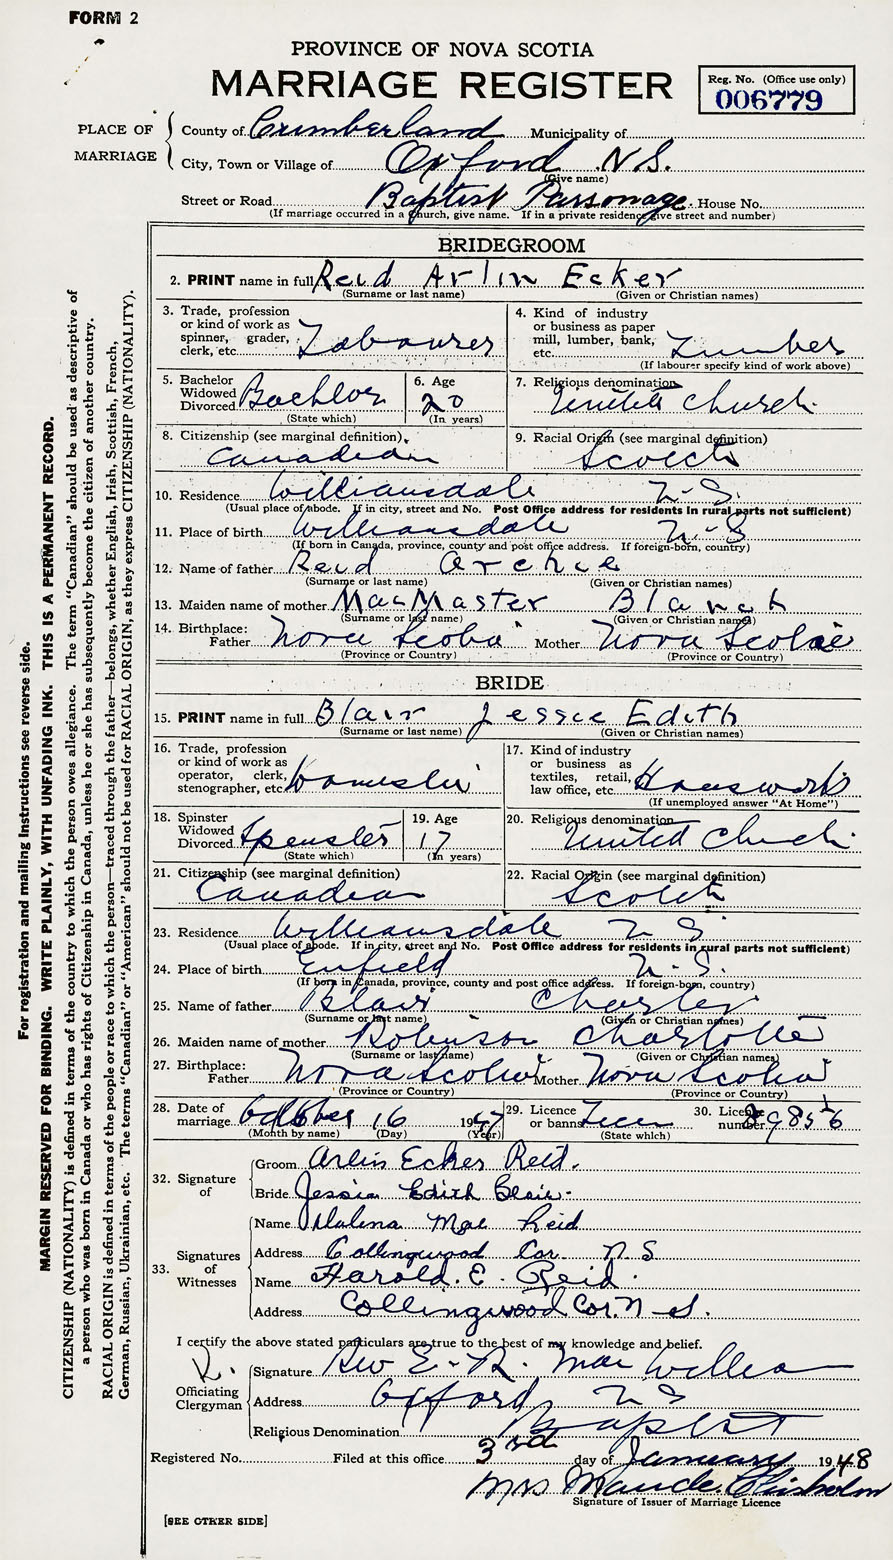 FORM 2
PROVINCE OF NOVA SCOTIA
MARRIAGE REGISTER
Reg. No. (Office use only)
006779
PLACE OF MARRIAGE
County of Cumberland Municipality of
City, Town or Village of Oxford N.S.
(Give name)
Street or Road Baptist Parsonage House No.
(If marriage occurred in a church, give name. If in a private residence give street and number)
BRIDEGROOM
2. PRINT name in full Reid Arlin Ecker
(Surname or last name) (Given or Christian names)
3. Trade, profession or kind of work as spinner, grader, clerk, etc. Labourer
4. Kind of industry or business as paper mill, lumber, bank, etc. Lumber
(If labourer specify kind of work above)
5. Bachelor Widowed Divorced Bachlor
(State which)
6. Age 20
(In years)
7. Religious denomination United Church
8. Citizenship (see marginal definition) Canadian
9. Racial Origin (see marginal definition) Scotch
10. Residence Williamsdale N.S.
(Usual place of abode. If in city, street and No. Post Office address for residents in rural parts not sufficient)
11. Place of birth Williamsdale N.S
(If born in Canada, province, county and post office address. If foreign-born, country)
12. Name of father Reid Archie
(Surname or last name) (Given or Christian names)
13. Maiden name of mother MacMaster Blanch
(Surname or last name) (Given or Christian names)
14. Birthplace: Father Nova Scotia Mother Nova Scotia
(Province or Country) (Province or Country)
BRIDE
15. PRINT name in full Blair Jessie Edith
(Surname or last name) (Given or Christian names)
16. Trade, profession or kind of work as operator, clerk, stenographer, etc. Domestic
17. Kind of industry or business as textiles, retail, law office, etc. Housework
(If unemployed answer "At Home")
18. Spinster Widowed Divorced Spenster
(State which)
19. Age 17
(In years)
20. Religious denomination United Church
21. Citizenship (see marginal definition) Canadian
22. Racial Origin (see marginal definition) Scotch
23. Residence Williamsdale N S
(Usual place of abode. If in city, street and No. Post Office address for residents in rural parts not sufficient)
24. Place of birth Enfield N.S.
(If born in Canada, province, county and post office address. If foreign-born, country)
25. Name of father Blair Charley
(Surname or last name) (Given or Christian names)
26. Maiden name of mother Robinson Charlotte
(Surname or last name) (Given or Christian names)
27. Birthplace: Father Nova Scotia Mother Nova Scotia
(Province or Country) (Province or Country)
28. Date of marriage October 16 1947
(Month by name) (Day) (Year)
29. Licence or banns
(State which)
30. Licence number
32. Signature of
Groom Arlin Ecker Reid.
Bride Jessie Edith Blair.
33. Signatures of Witnesses
Name Mae Reid
Address Collingwood Cor. N S
Name Harold. E. Reid.
Address Collingwood Cor. N S.
I certify the above stated particulars are true to the best of my knowledge and belief.
Officiating Clergyman
Signature Rev E. R. MacWilliam
Address Oxford N S
Religious Denomination Baptist
Registered No. Filed at this office 3rd day of January 1948
Mrs Maude Chisholm
Signature of Issuer of Marriage Licence
[SEE OTHER SIDE]
For registration and mailing instructions see reverse side.
MARGIN RESERVED FOR BINDING. WRITE PLAINLY, WITH UNFADING INK. THIS IS A PERMANENT RECORD.
CITIZENSHIP (NATIONALITY) is defined in terms of the country to which the person owes allegiance. The term "Canadian" should be used as descriptive of
a person who was born in Canada or who has rights of Citizenship in Canada, unless he or she has subsequently become the citizen of another country.
RACIAL ORIGIN is defined in terms of the people or race to which the person—traced through the father—belongs, whether English, Irish, Scottish, French,
German, Russian, Ukrainian, etc. The terms "Canadian" or "American" should not be used for RACIAL ORIGIN, as they express CITIZENSHIP (NATIONALITY).